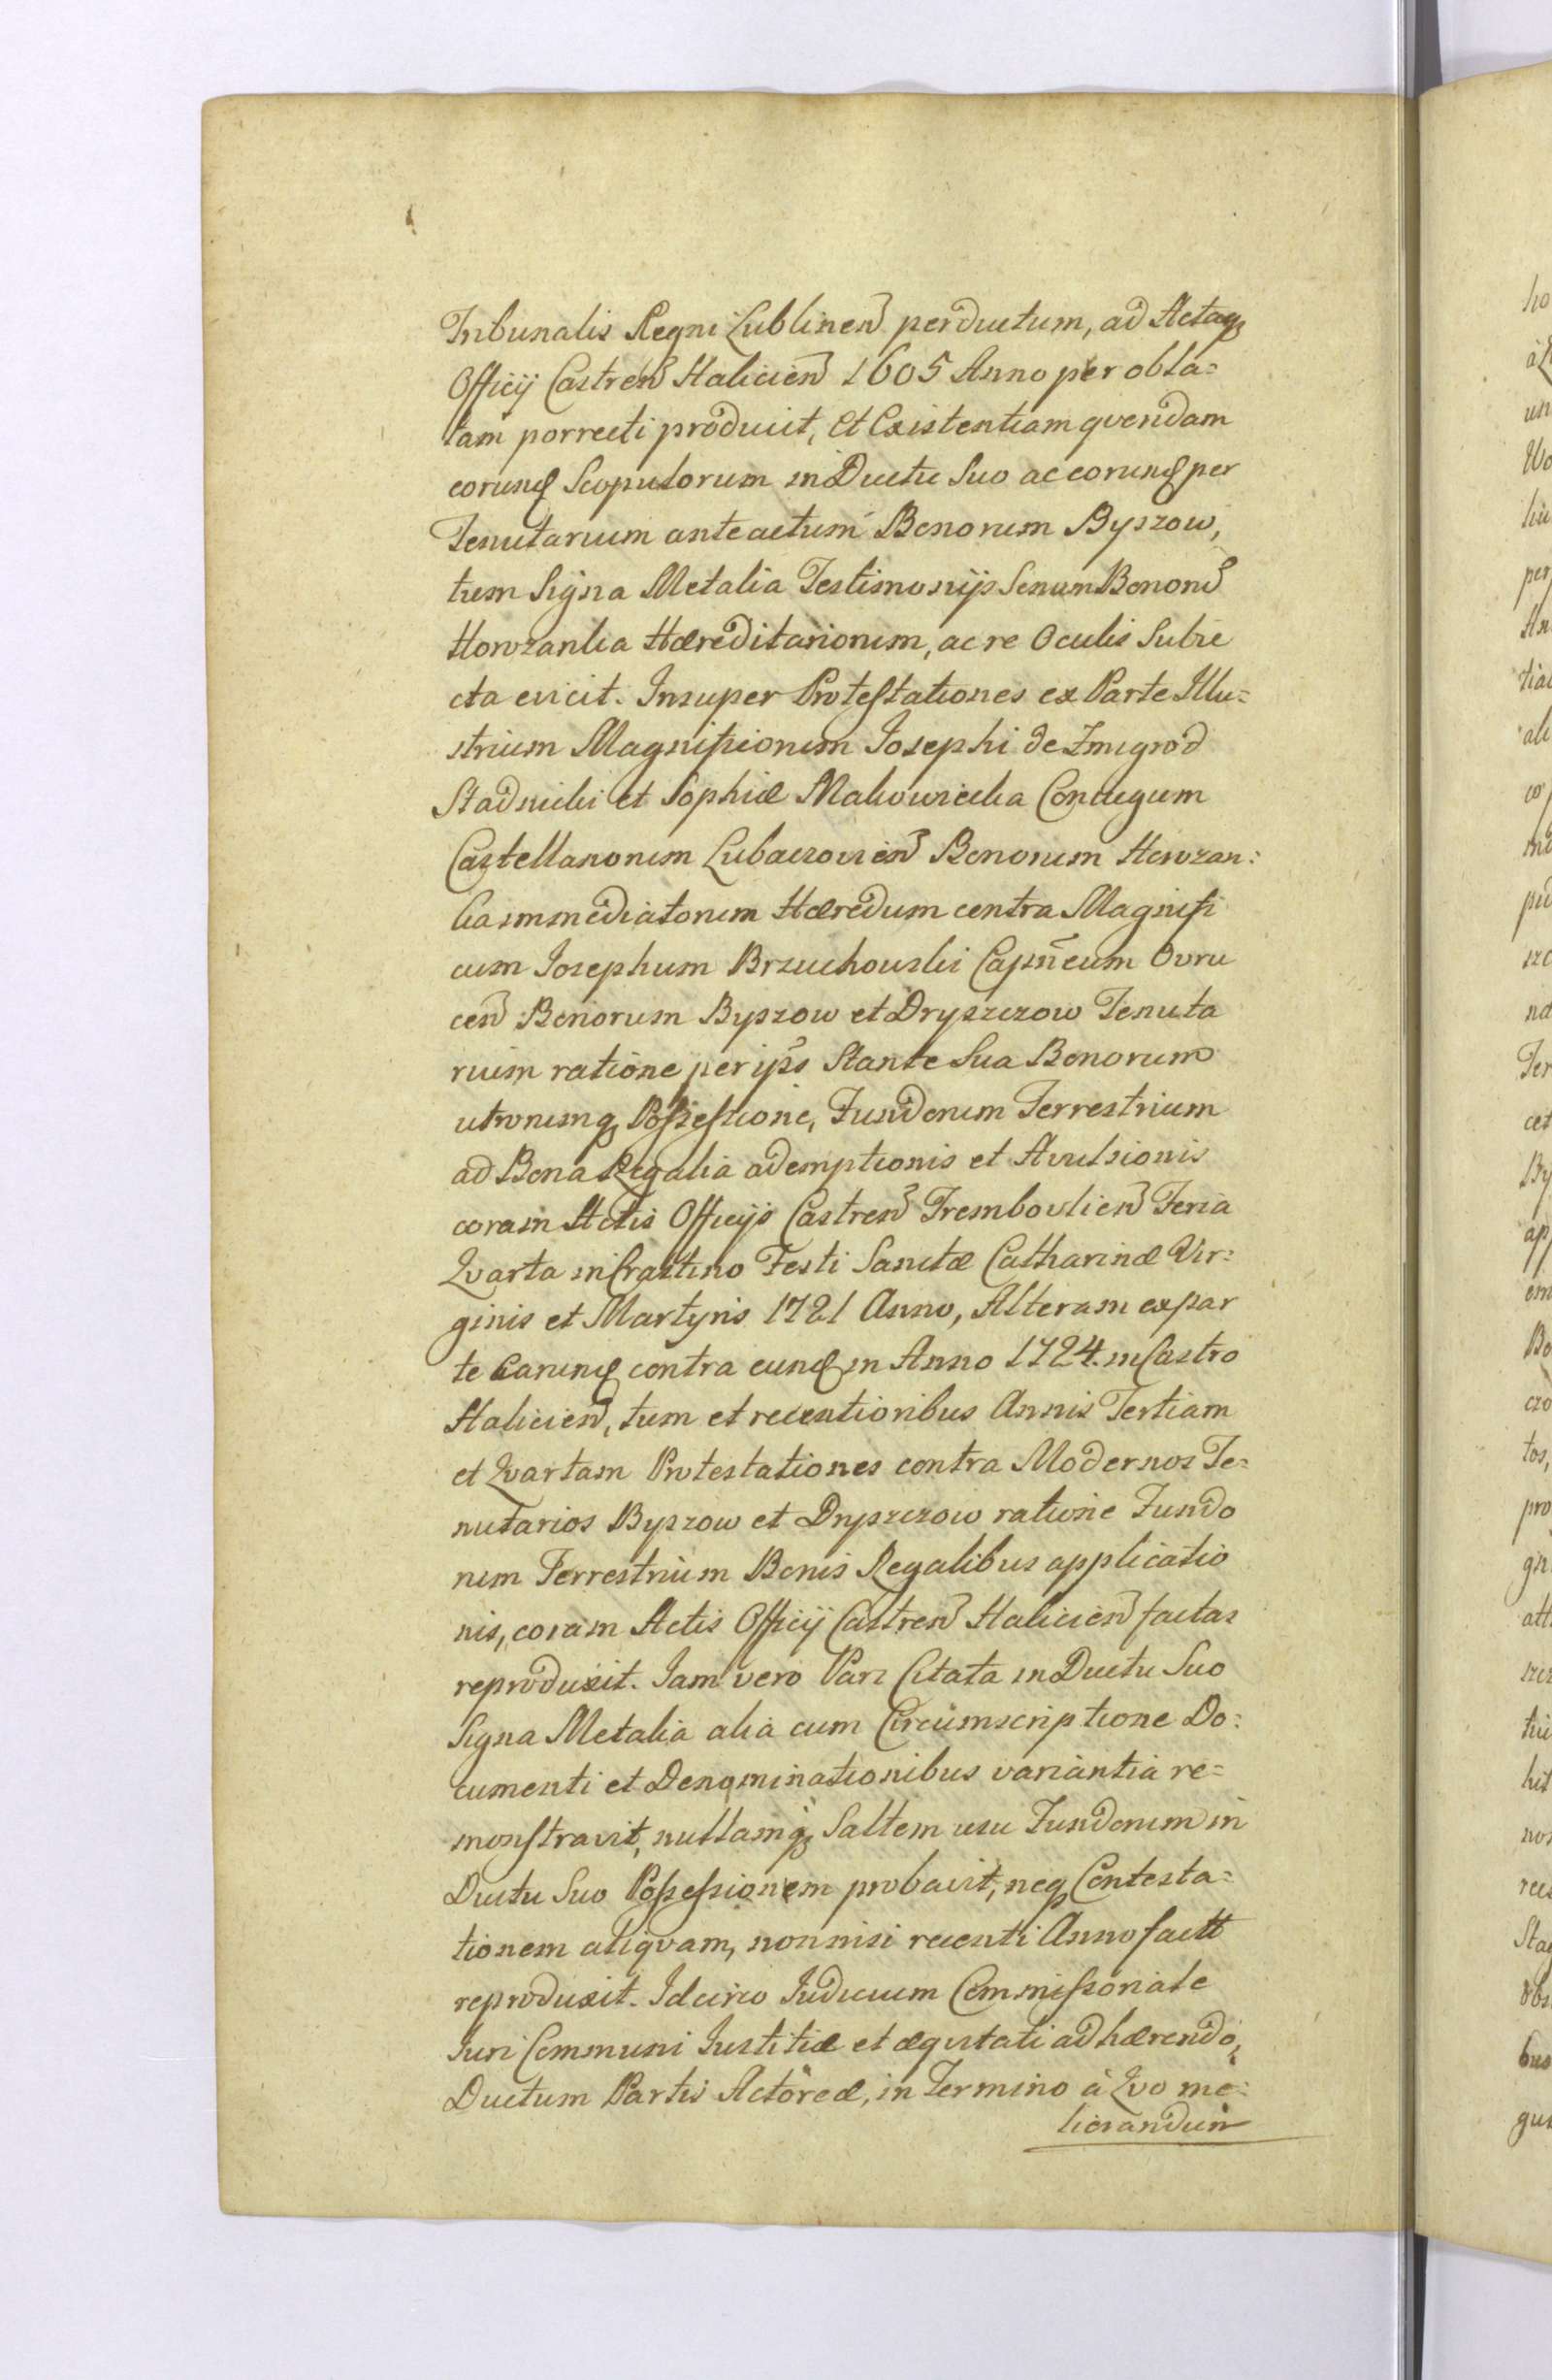 Tribunalis Regni Lublinen̄ perductum, ad Actaqȝ
Officij Castren̄ Halicien̄ 1605 Anno per obla=
tam porrecti produxit, Et Existentiam qvendam
eorunđ Scopulorum in Ductu Suo ac eorunđ per
Tenutarium anteactum Bonorum Byszow,
tum Signa Metalia Testimonijs Senum Bonorū
Horozanka Hæreditariorum, ac re Oculis Subie
cta evicit. Insuper Protestationes ex Parte Illu=
strium Magnificorum Josephi de Zmigrod
Stadnicki et Sophiæ Makowiecka Coniugum
Castellanorum Lubaczovien̄ Bonorum Horozan=
ka immediatorum Hæredum contra Magnifi
cum Josephum Brzuchowski Capn̄eum Ovru
cen̄ Bonorum Byszow et Dryszczow Tenuta
rium ratione per ips̄o Stante Sua Bonorum
utrorumqȝ Possessione, Fundorum Terrestrium
ad Bona Regalia ademptionis et Avulsionis
coram Actis Officijs Castren̄ Trembovlien̄ Feria
Qvarta in Crastino Festi Sanctæ Catharinæ Vir=
ginis et Martyris 1721 Anno, Alteram ex par
te Earunđ contra eunđ in Anno 1724. in Castro
Halicien̄, tum et recentioribus Annis Tertiam
et Qvartam Protestationes contra Modernos Te=
nutarios Byszow et Dryszczow ratione Fundo
rum Terrestrium Bonis Regalibus applicatio
nis, coram Actis Officij Castren̄ Halicien̄ factas
reproduxit. Jam vero Pars Citata in Ductu Suo
Signa Metalia alia cum Circumscriptione Do=
cumenti et Denominationibus variantia re=
monstravit, nullamqȝ Saltem usu Fundorum in
Ductu Suo Possessionem probavit, neqȝ Contesta=
tionem aliqvam, nonnisi recenti Anno factt
reproduxit. Idcirco Judicium Commissoriale
Juri Communi Justitiæ et æqvitati adhærendo,
Ductum Partis Actoreæ, in Termino à Qvo me=
liorandum